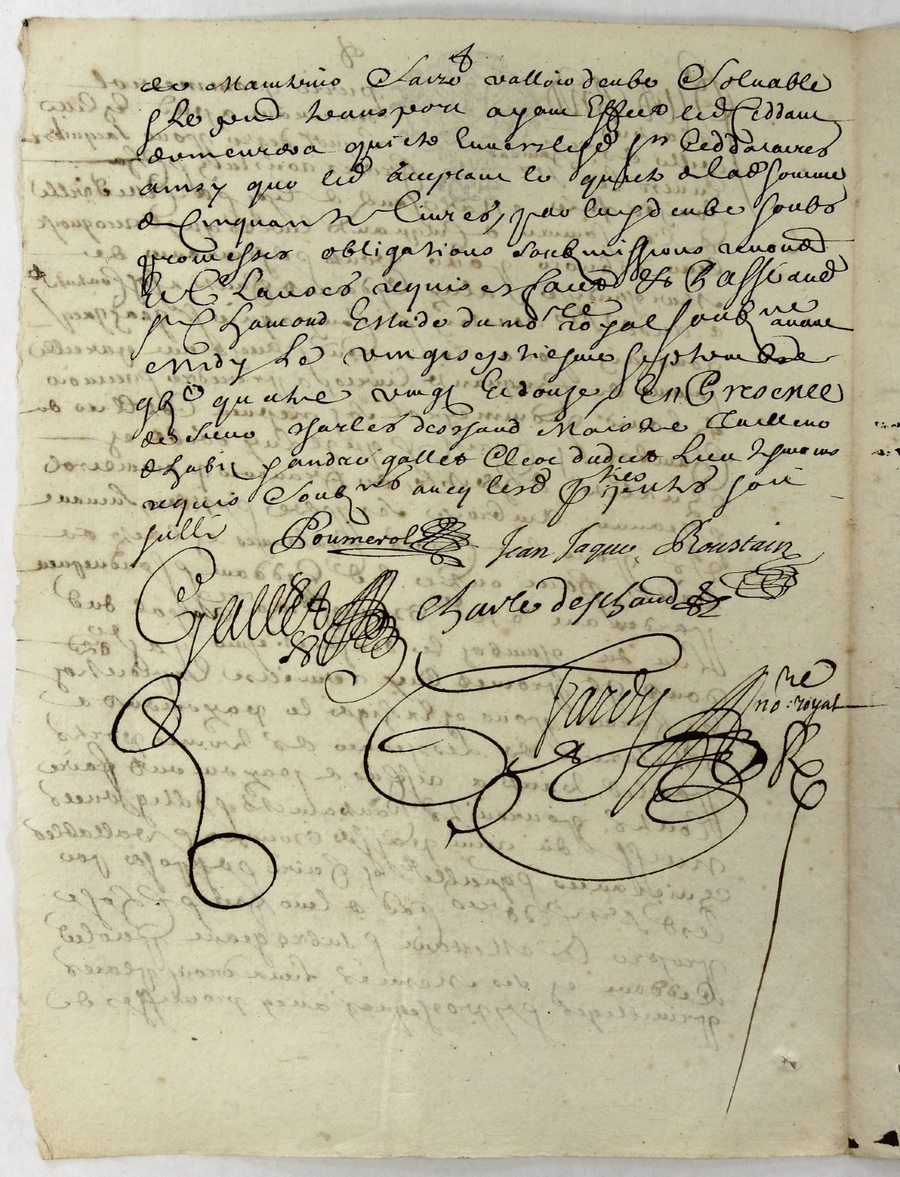 de
vallois deube Soluable
p le pnd transport ayant Effect led Ceddant
demeurera quicte Envers lesd srs Ceddataires
ainsy que led acceptant le quicte de lad somme
de Cinquante Livres, par luy deube soubs
promesses obligations soubmissions renond
Et Clauses requises faict & Passé aud
st Chamond Estude du nore royal soubne avant
midy Le vingt septiesme septembre
quatre vingt Et douze, En Presence
de sieur Charles deschaud Maistre
dhabit, & andré gallet Clerc dudict Lieu tesmoins
requis Soubnes avecq lesd pties
Poumerol Jean Jaque Roustain
Gallet Charle deschaud
Tardy
nore royal